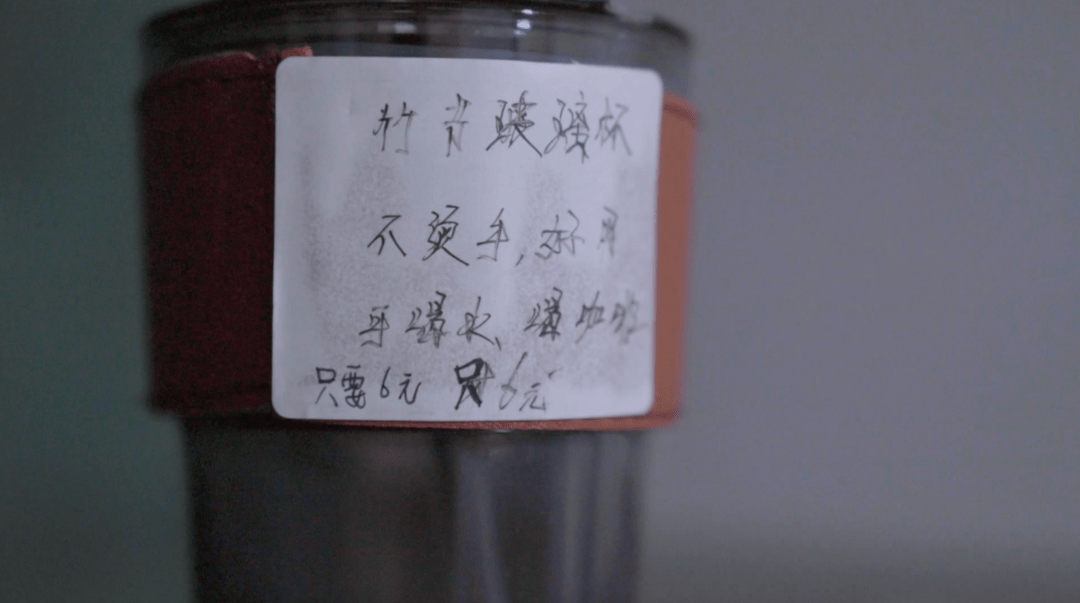 竹节玻璃杯
不烫手,好用
可喝水、喝咖啡
只要6元 只 6元